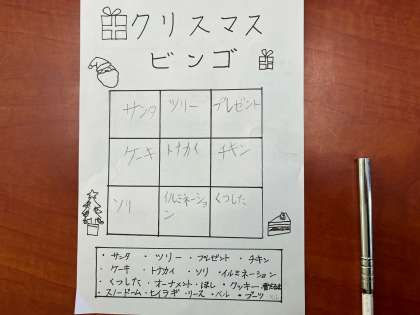 クリスマス
ビンゴ
サンタ ツリー プレゼント
ケーキ トナカイ チキン
ソリ イルミネーション くつした
・サンタ ・ツリー ・プレゼント ・チキン
・ケーキ ・トナカイ ・ソリ ・イルミネーション
・くつした ・オーナメント ・ほし ・クッキー
・スノードーム ・ヒイラギ ・リース ・ベル ・ブーツ